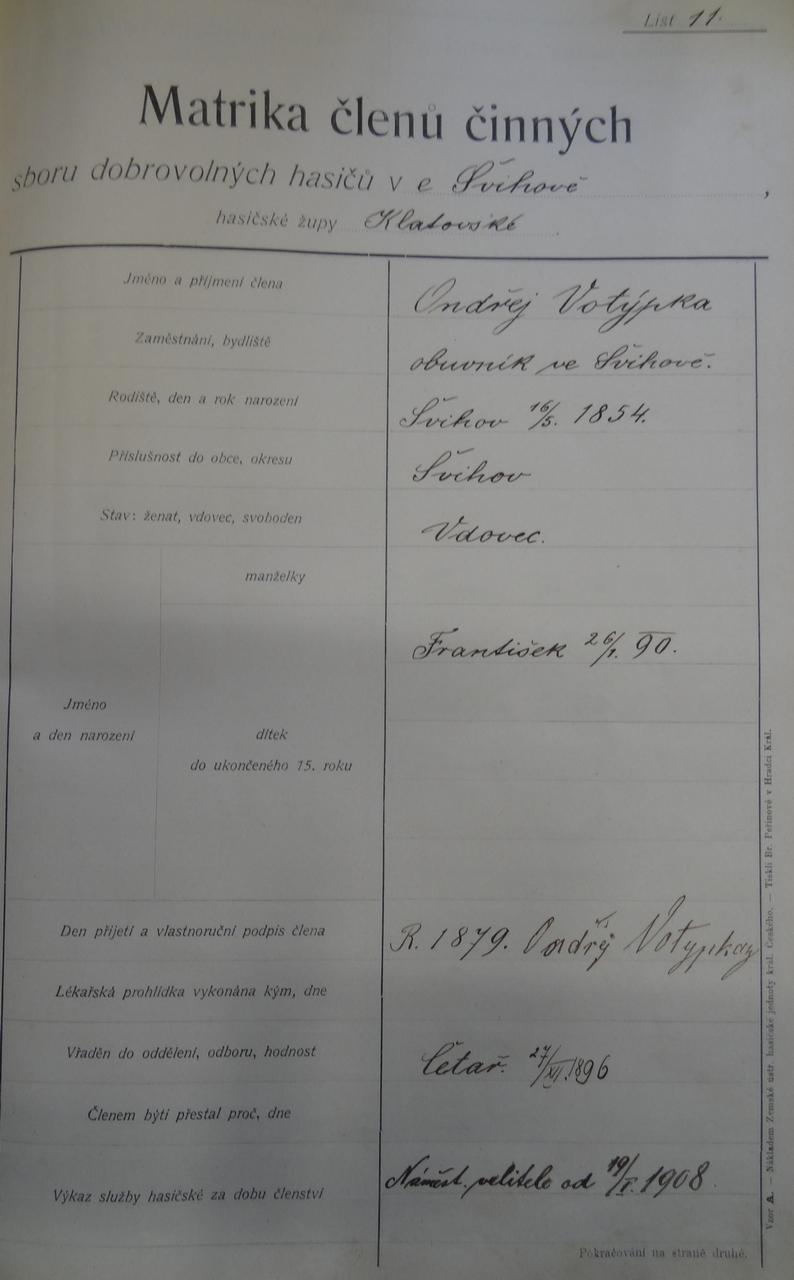 List 11.
Matrika členů činných
sboru dobrovolných hasičů v e Švihově,
hasičské župy Klatovské.
Jméno a příjmení člena Ondřej Votýpka
Zaměstnání, bydliště obuvník ve Švihově.
Rodiště, den a rok narození Švihov 16/5. 1854.
Příslušnost do obce, okresu Švihov
Stav: ženat, vdovec, svoboden Vdovec.
manželky
František 26/1. 90.
Jméno
a den narození dítek
do ukončeného 15. roku
Den přijetí a vlastnoruční podpis člena R. 1879. Ondřej
Lékařská prohlídka vykonána kým, dne
Vřaděn do oddělení, odboru, hodnost četař. 27/XII. 1896
Členem býti přestal proč, dne
Výkaz služby hasičské za dobu členství Náměst. velitele od 19/I. 1908.
Pokračování na straně druhé.
Vzor A. — Nákladem Zemské ústř. hasičské jednoty král. Českého. — Tiskli Br. Peřinové v Hradci Král.